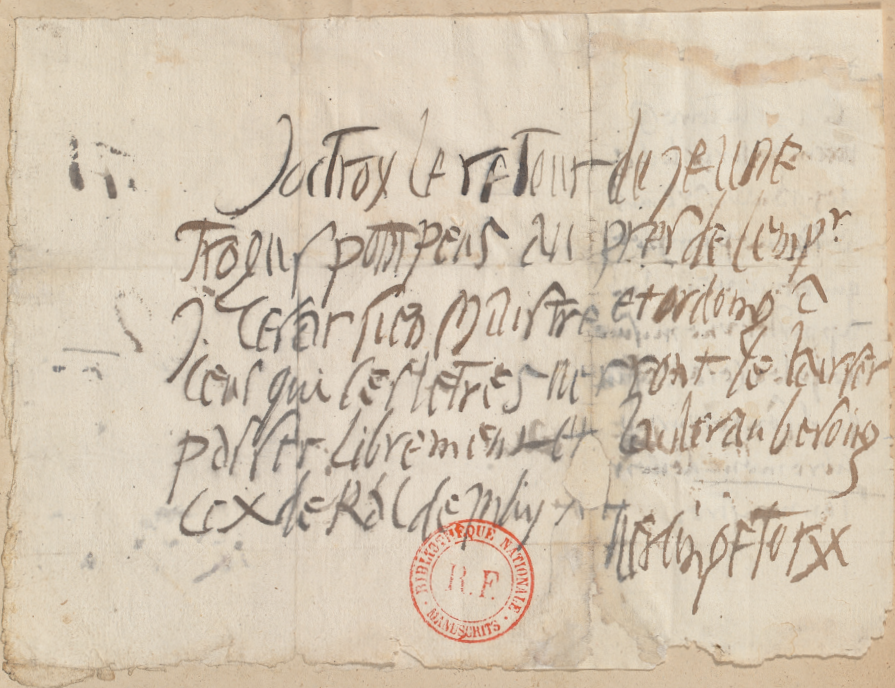 Joctroy le retour du jeune
Trogus pompeus au pres de lempr
J. Cesar sien maistre et ordong à
ceus qui ces letres verront le laisser
passer librement et laider au besoing
ce x de Kal de may
Vercingetorix
BIBLIOTHÈQUE NATIONALE
R.F.
MANUSCRITS